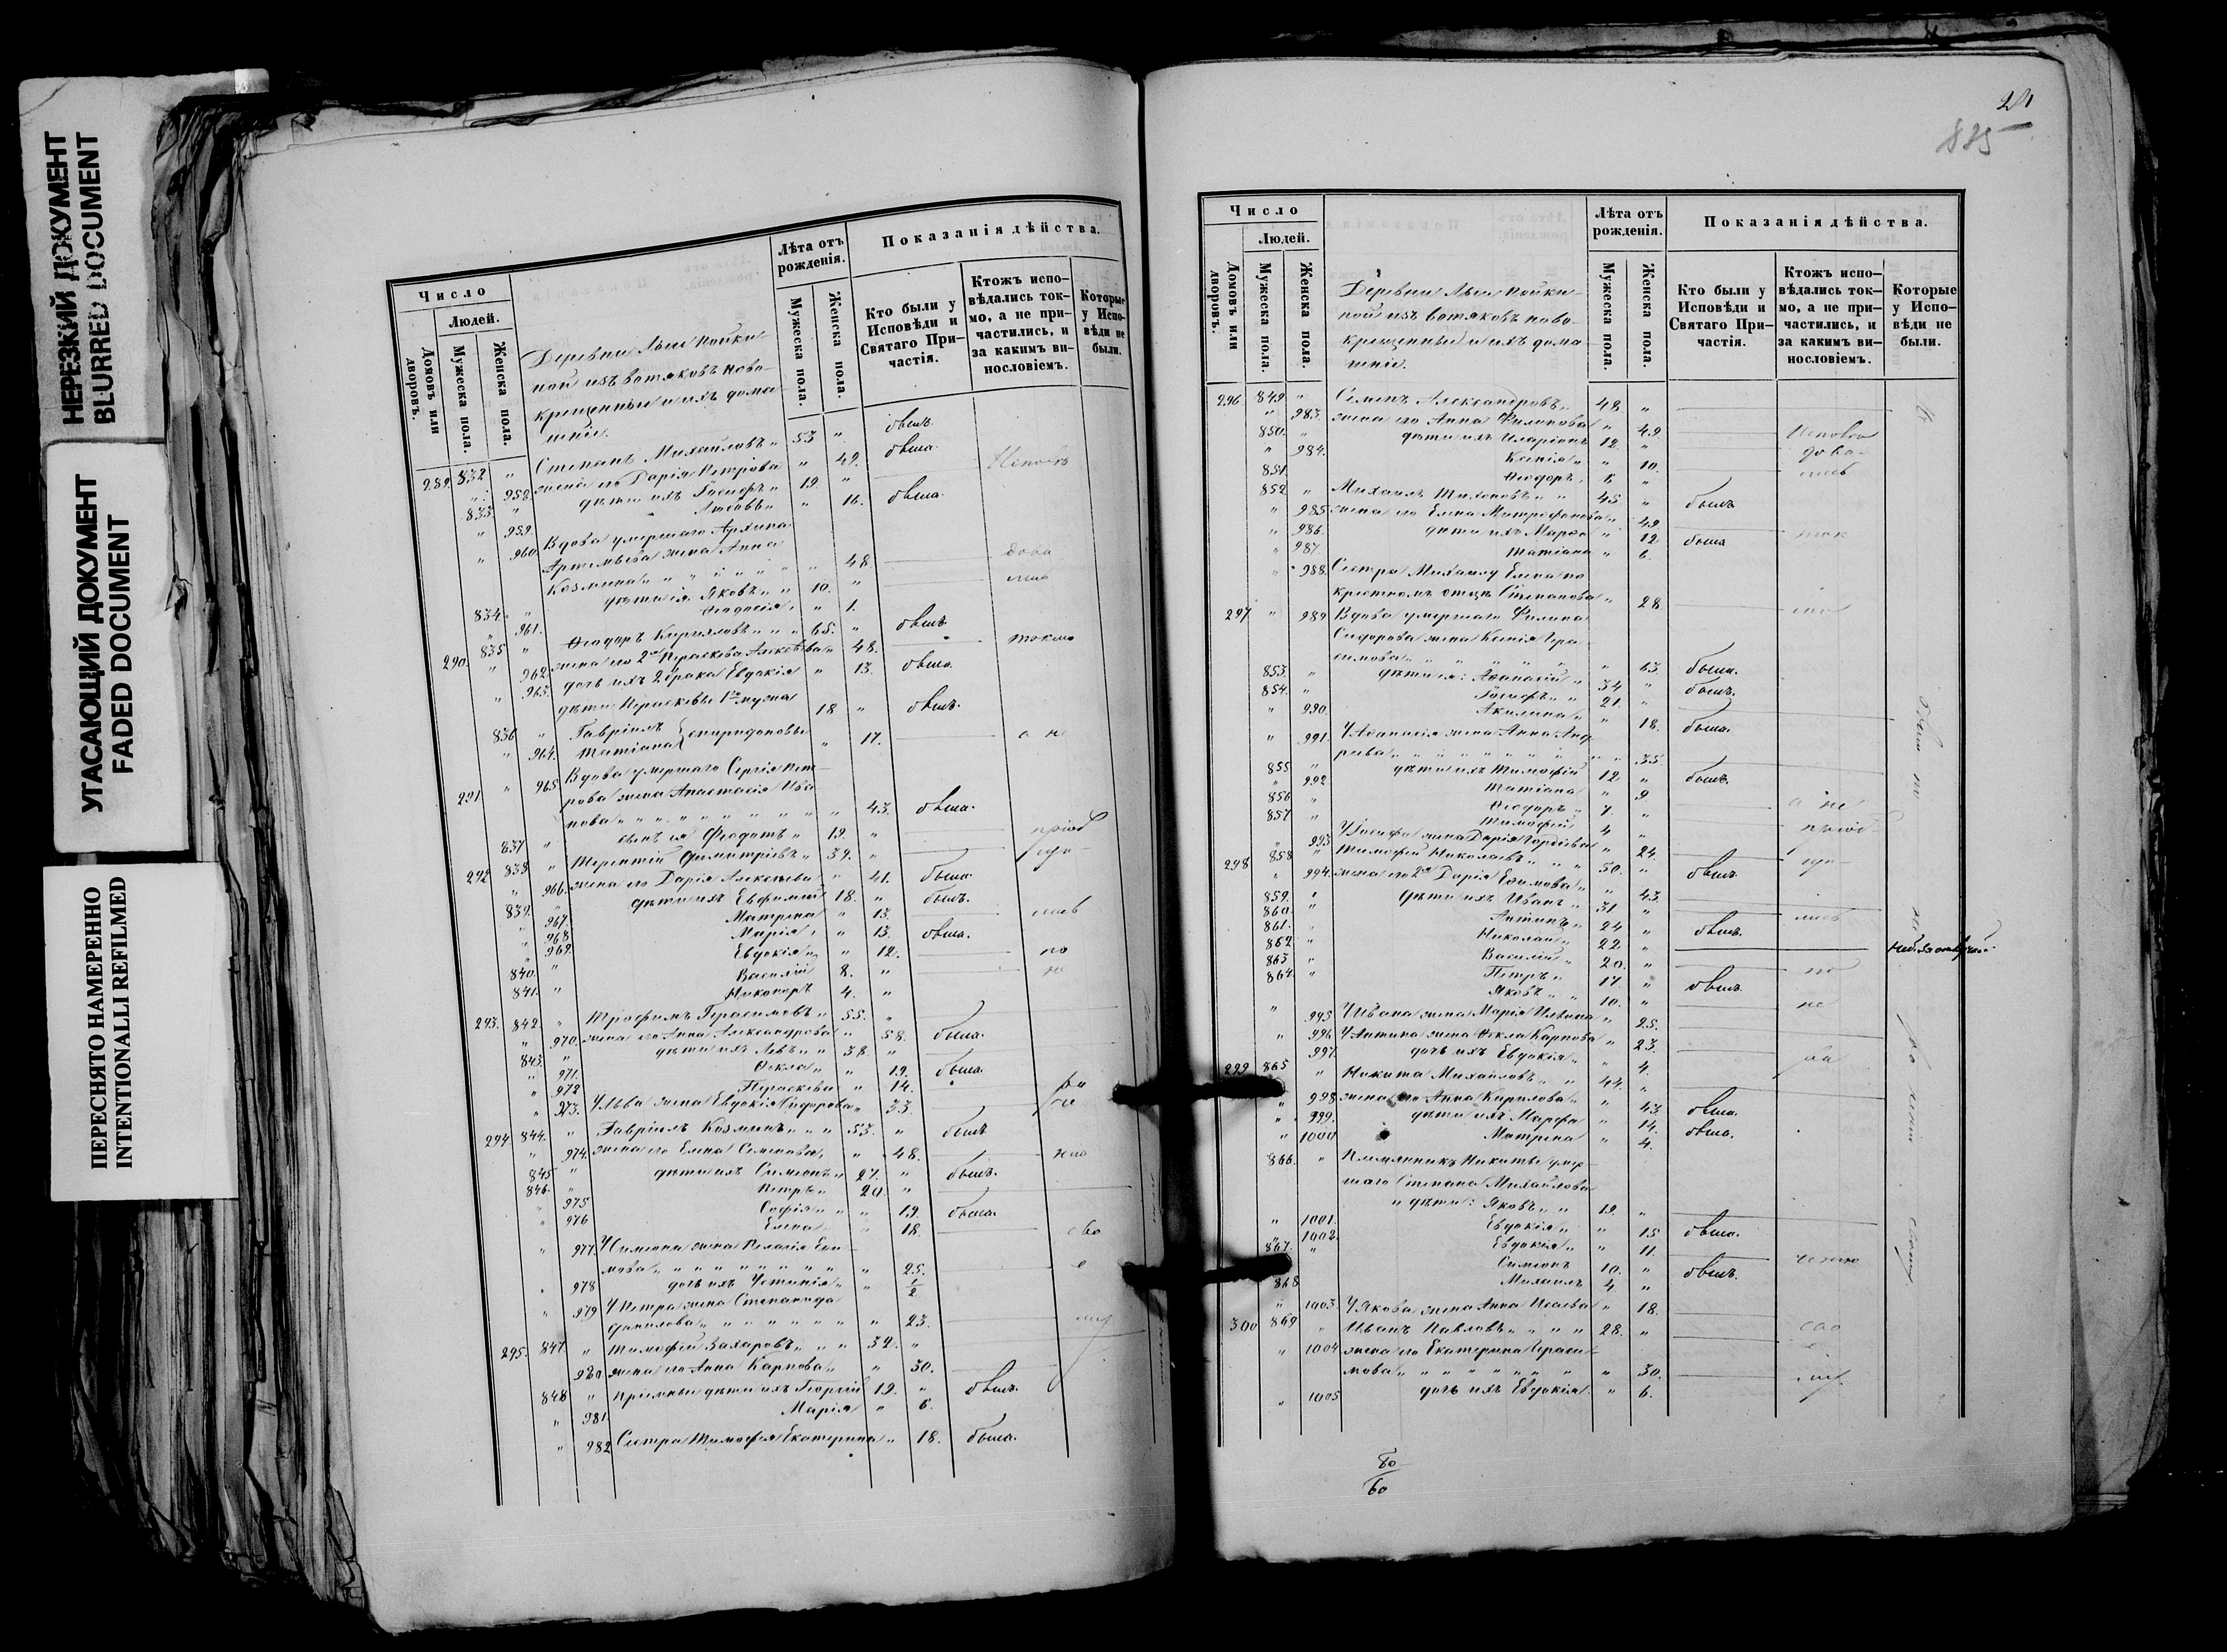 НЕРЕЗКИЙ ДОКУМЕНТ
BLURRED DOCUMENT
УГАСАЮЩИЙ ДОКУМЕНТ
FADED DOCUMENT
ПЕРЕСНЯТО НАМЕРЕННО
INTENTIONALLI REFILMED
Число
Людей.
Домовъ или дворовъ.
Мужеска пола.
Женска пола.
Лѣта отъ рожденія.
Мужеска пола.
Женска пола.
Показанія дѣйства.
Кто были у Исповѣди и Святаго Причастія.
Ктожъ исповѣдались токмо, а не причастились, и за какимъ винословіемъ.
Которые у Исповѣди не были.
Деревни
ной изъ вотяковъ ново-
крещенные и ихъ дома-
шніе.
289 832 " Степанъ Михайловъ " 53 " былъ
" 958 жена его Дарія Петрова " 49. была
833 " дѣти ихъ Іосифъ " 19. "
" 959. Любовь " " 16. была.
" 960. Вдова умершаго Архипа
Артемьева жена Анна
Козмина " 48
834 " дѣти ея Яковъ " 10. "
" 961. Ѳеодосія " " 1.
290. 835 " Ѳеодоръ Кирилловъ " 65. " былъ
" 962 жена его 2я Параскева Алексѣева " 48. токмо
" 963. дочь ихъ 2 брака Евдокія " 13. была.
дѣти Параскевы 1го мужа
836 " Гавріилъ 18 " былъ.
" 964. Татіана спиридоновы " 17. а не
291 " 965 Вдова умершаго Сергія Пет-
рова жена Анастасія Ива-
нова " 43. была.
837 " сынъ ея Ѳеодотъ " 19. "
292 838 " Терентій Димитріевъ " 39. "
" 966. жена его Дарія Алексѣева " 41. была
839. " дѣти ихъ Евфимій 18. " былъ.
" 967. Матрена " 15.
" 968 Марія " " 13. была.
" 969. Евдокія " " 12.
840. " Василій 8. "
841. " Никоноръ 4. "
293. 842. " Трофимъ Герасимовъ " 55. "
" 970. жена его Анна Александрова " 58. была.
843. " дѣти ихъ Левъ " 38. "
" 971. Ѳекла " " 19. была.
" 972 Параскева " 14.
" 973. У Льва жена Евдокія Сидорова " 33.
294 844. " Гавріилъ Козминъ " 53. " былъ
" 974. жена его Елена Семенова " 48.
845 " дѣти ихъ Симеонъ " 27. " былъ.
846. " Петръ " 20. "
" 975 Софія " " 19. была.
" 976 Елена " " 18.
" 977. У Симеона жена Пелагія Ефи-
мова " 25.
" 978 дочь ихъ Устинія " " 1/2
" 979 У Петра жена Степанида
Данилова " 23.
295. 847 " Тимофей Захаровъ " 32. "
" 980 жена его Анна Карпова " " 30.
848 " Пріемные дѣти ихъ Георгій 19. " былъ.
" 981. Марія " 6.
" 982 Сестра Тимофея Екатерина " 18. была.
885
Число
Людей.
Домовъ или дворовъ.
Мужеска пола.
Женска пола.
Лѣта отъ рожденія.
Мужеска пола.
Женска пола.
Показанія дѣйства.
Кто были у Исповѣди и Святаго Причастія.
Ктожъ исповѣдались токмо, а не причастились, и за какимъ винословіемъ.
Которые у Исповѣди не были.
Деревни
ной изъ вотяковъ ново-
крещенные и ихъ дома-
шніе.
296 849 " Семенъ Александровъ " 48. "
" 983. жена его Анна Филипова " 49.
850. " дѣти ихъ Иларіонъ 12. "
" 984. Ксенія " " 10.
851. " Ѳеодоръ
852 " Михаилъ Тихоновъ " 45 " былъ
" 985 жена его Елена Митрофанова " 49.
" 986. дѣти ихъ Марѳа " 12. была
" 987. Татіана " 6.
" 988. Сестра Михаилу Елена по
крестномъ отцѣ Степанова " 28
297 " 989 Вдова умершаго Филипа
Сидорова жена Ксенія Гера-
симова " 63. была.
853. " дѣти ея: Аѳанасій " 34 " былъ.
854. " Іосифъ " 21. "
" 990. Акилина " " 18. была.
" 991. У Аѳанасія жена Анна Анд-
реева " 35
855 " дѣти ихъ Тимоѳей 12. " былъ.
" 992 Татіана " 9
856 " Ѳеодоръ " 7. "
857 " Тимоѳей 4 "
" 993 У Іосифа жена Дарія Гордѣева " 24.
298 858 " Тимоѳей Николаевъ " 50. " былъ.
" 994. жена его 2я Дарія Ефимова " 43.
859. " дѣти ихъ Иванъ " 31 "
860. " Антипъ " 24 " былъ.
861. " Николай " 22. "
862 " Василій " 20. "
863 " Петръ " 17. " былъ
864 " Яковъ " 10. "
" 995 У Ивана жена Марія Ильина " 25.
" 996 У Антипа жена Ѳекла Карпова " 23.
" 997. дочь ихъ Евдокія " 4.
299 865 " Никита Михайловъ " 44. "
" 998 жена его Анна Кирилова " " 43. была.
" 999. дѣти ихъ Марѳа " 14. была.
" 1000 Матрена " 4.
866. " Племянникъ Никиты умер-
шаго Степана Михайлова
дѣти: Яковъ " 19. "
" 1001. Евдокія " " 15 была.
" 1002. Евдокія " " 11.
867. " Симеонъ 10. " былъ.
868 Михаилъ 4 "
" 1003. У Якова жена Анна Исаева " 18.
300 869 " Иванъ Павловъ " 28. "
" 1004 жена его Екатерина Гераси-
мова " 30.
" 1005 дочь ихъ Евдокія " 6.
80
60